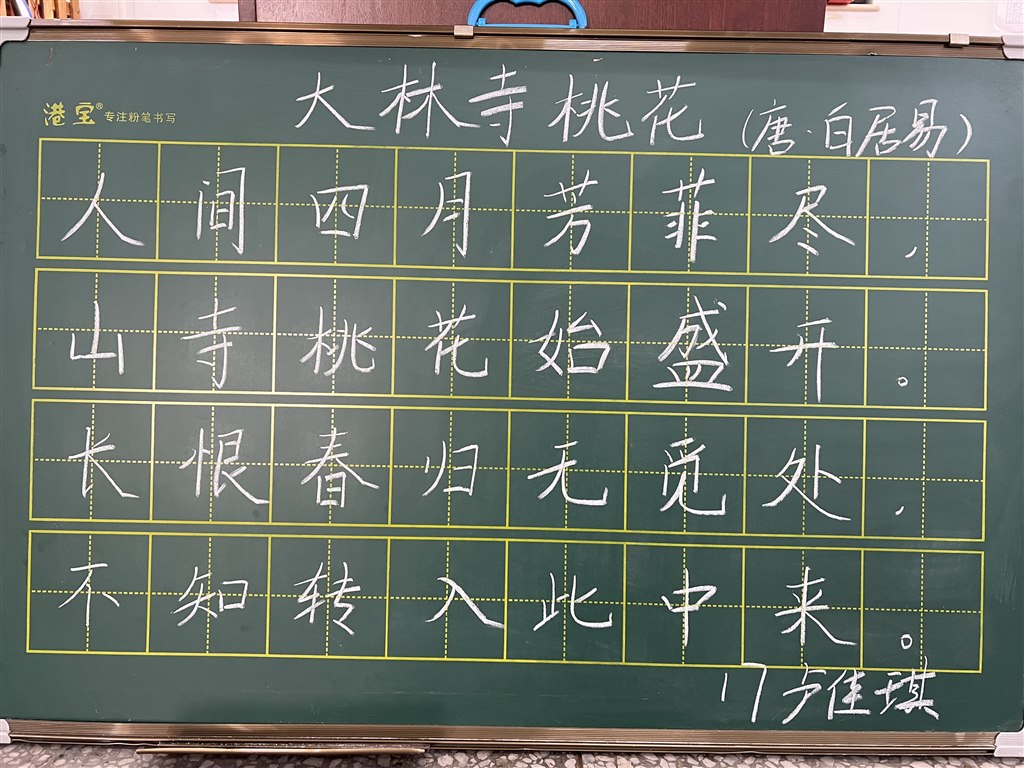 大林寺桃花（唐·白居易）
港宝® 专注粉笔书写
人间四月芳菲尽，
山寺桃花始盛开。
长恨春归无觅处，
不知转入此中来。
17卢佳琪